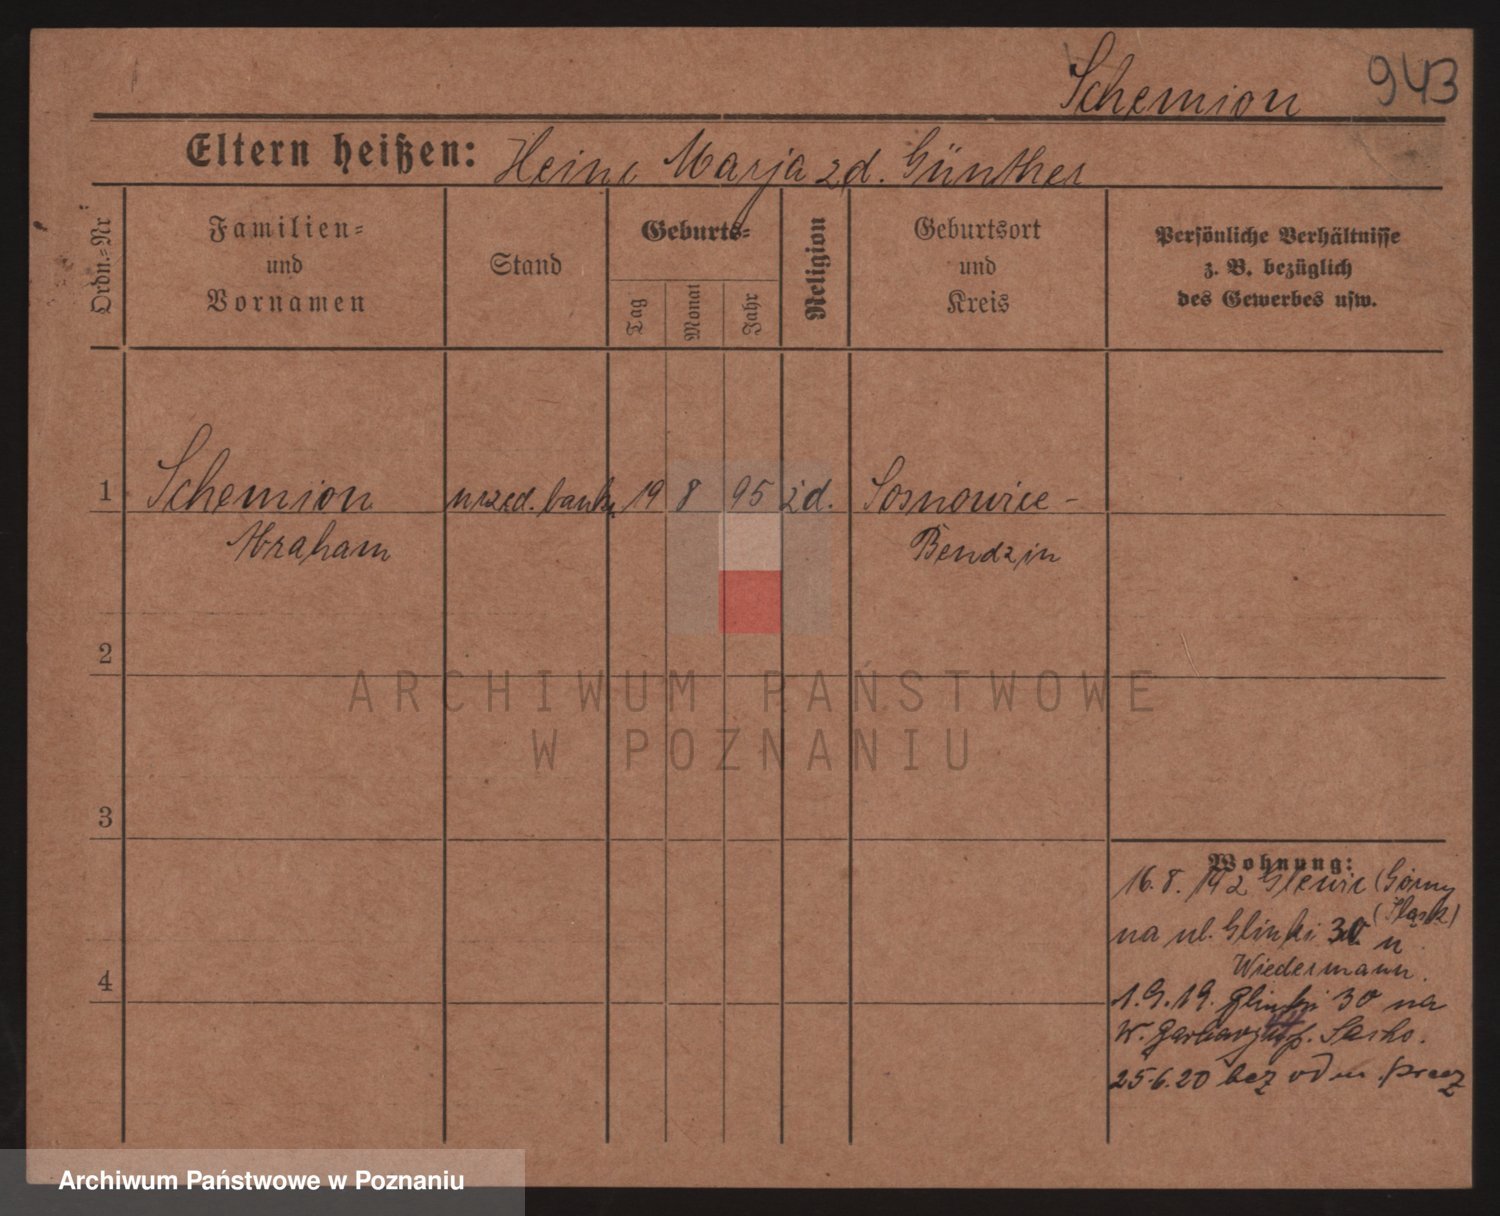 Schemion 943
Eltern heißen: Heine Marja zd. Günther
Ordn.=Nr
Familien=
und
Vornamen
Stand
Geburts=
Tag
Monat
Jahr
Religion
Geburtsort
und
Kreis
Persönliche Verhältnisse
z. B. bezüglich
des Gewerbes usw.
1 Schemion urzęd. bank. 19 8 95 żd. Sosnowice -
Abraham Bendzin
2
3
4
Wohnung:
16. 8. (Górny
(Śląsk)
na ul. Glinki 30 u
Wiedermann.
1.9.19. Glinki 30 na
W. Garbary
25.6.20 bez odm. precz
ARCHIWUM PAŃSTWOWE
W POZNANIU
Archiwum Państwowe w Poznaniu